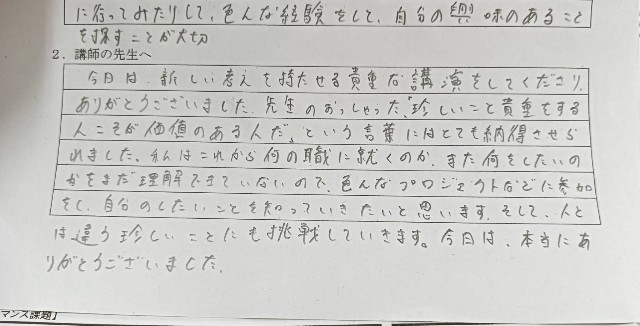 に行ってみたりして、色んな経験をして、自分の興味のあること
を探すことが大切
2．講師の先生へ
今日は、新しい考えを持たせる貴重な講演をしてくださり、
ありがとうございました。先生のおっしゃった、「珍しいこと貴重をする
人こそが価値のある人だ」という言葉にはとても納得させら
れました。私はこれから何の職に就くのか、また何をしたいの
かをまだ理解できていないので、色んなプロジェクトなどに参加
をし、自分のしたいことを知っていきたいと思います。そして、人と
は違う珍しいことにも挑戦していきます。今日は、本当にあ
りがとうございました。
マンス課題」